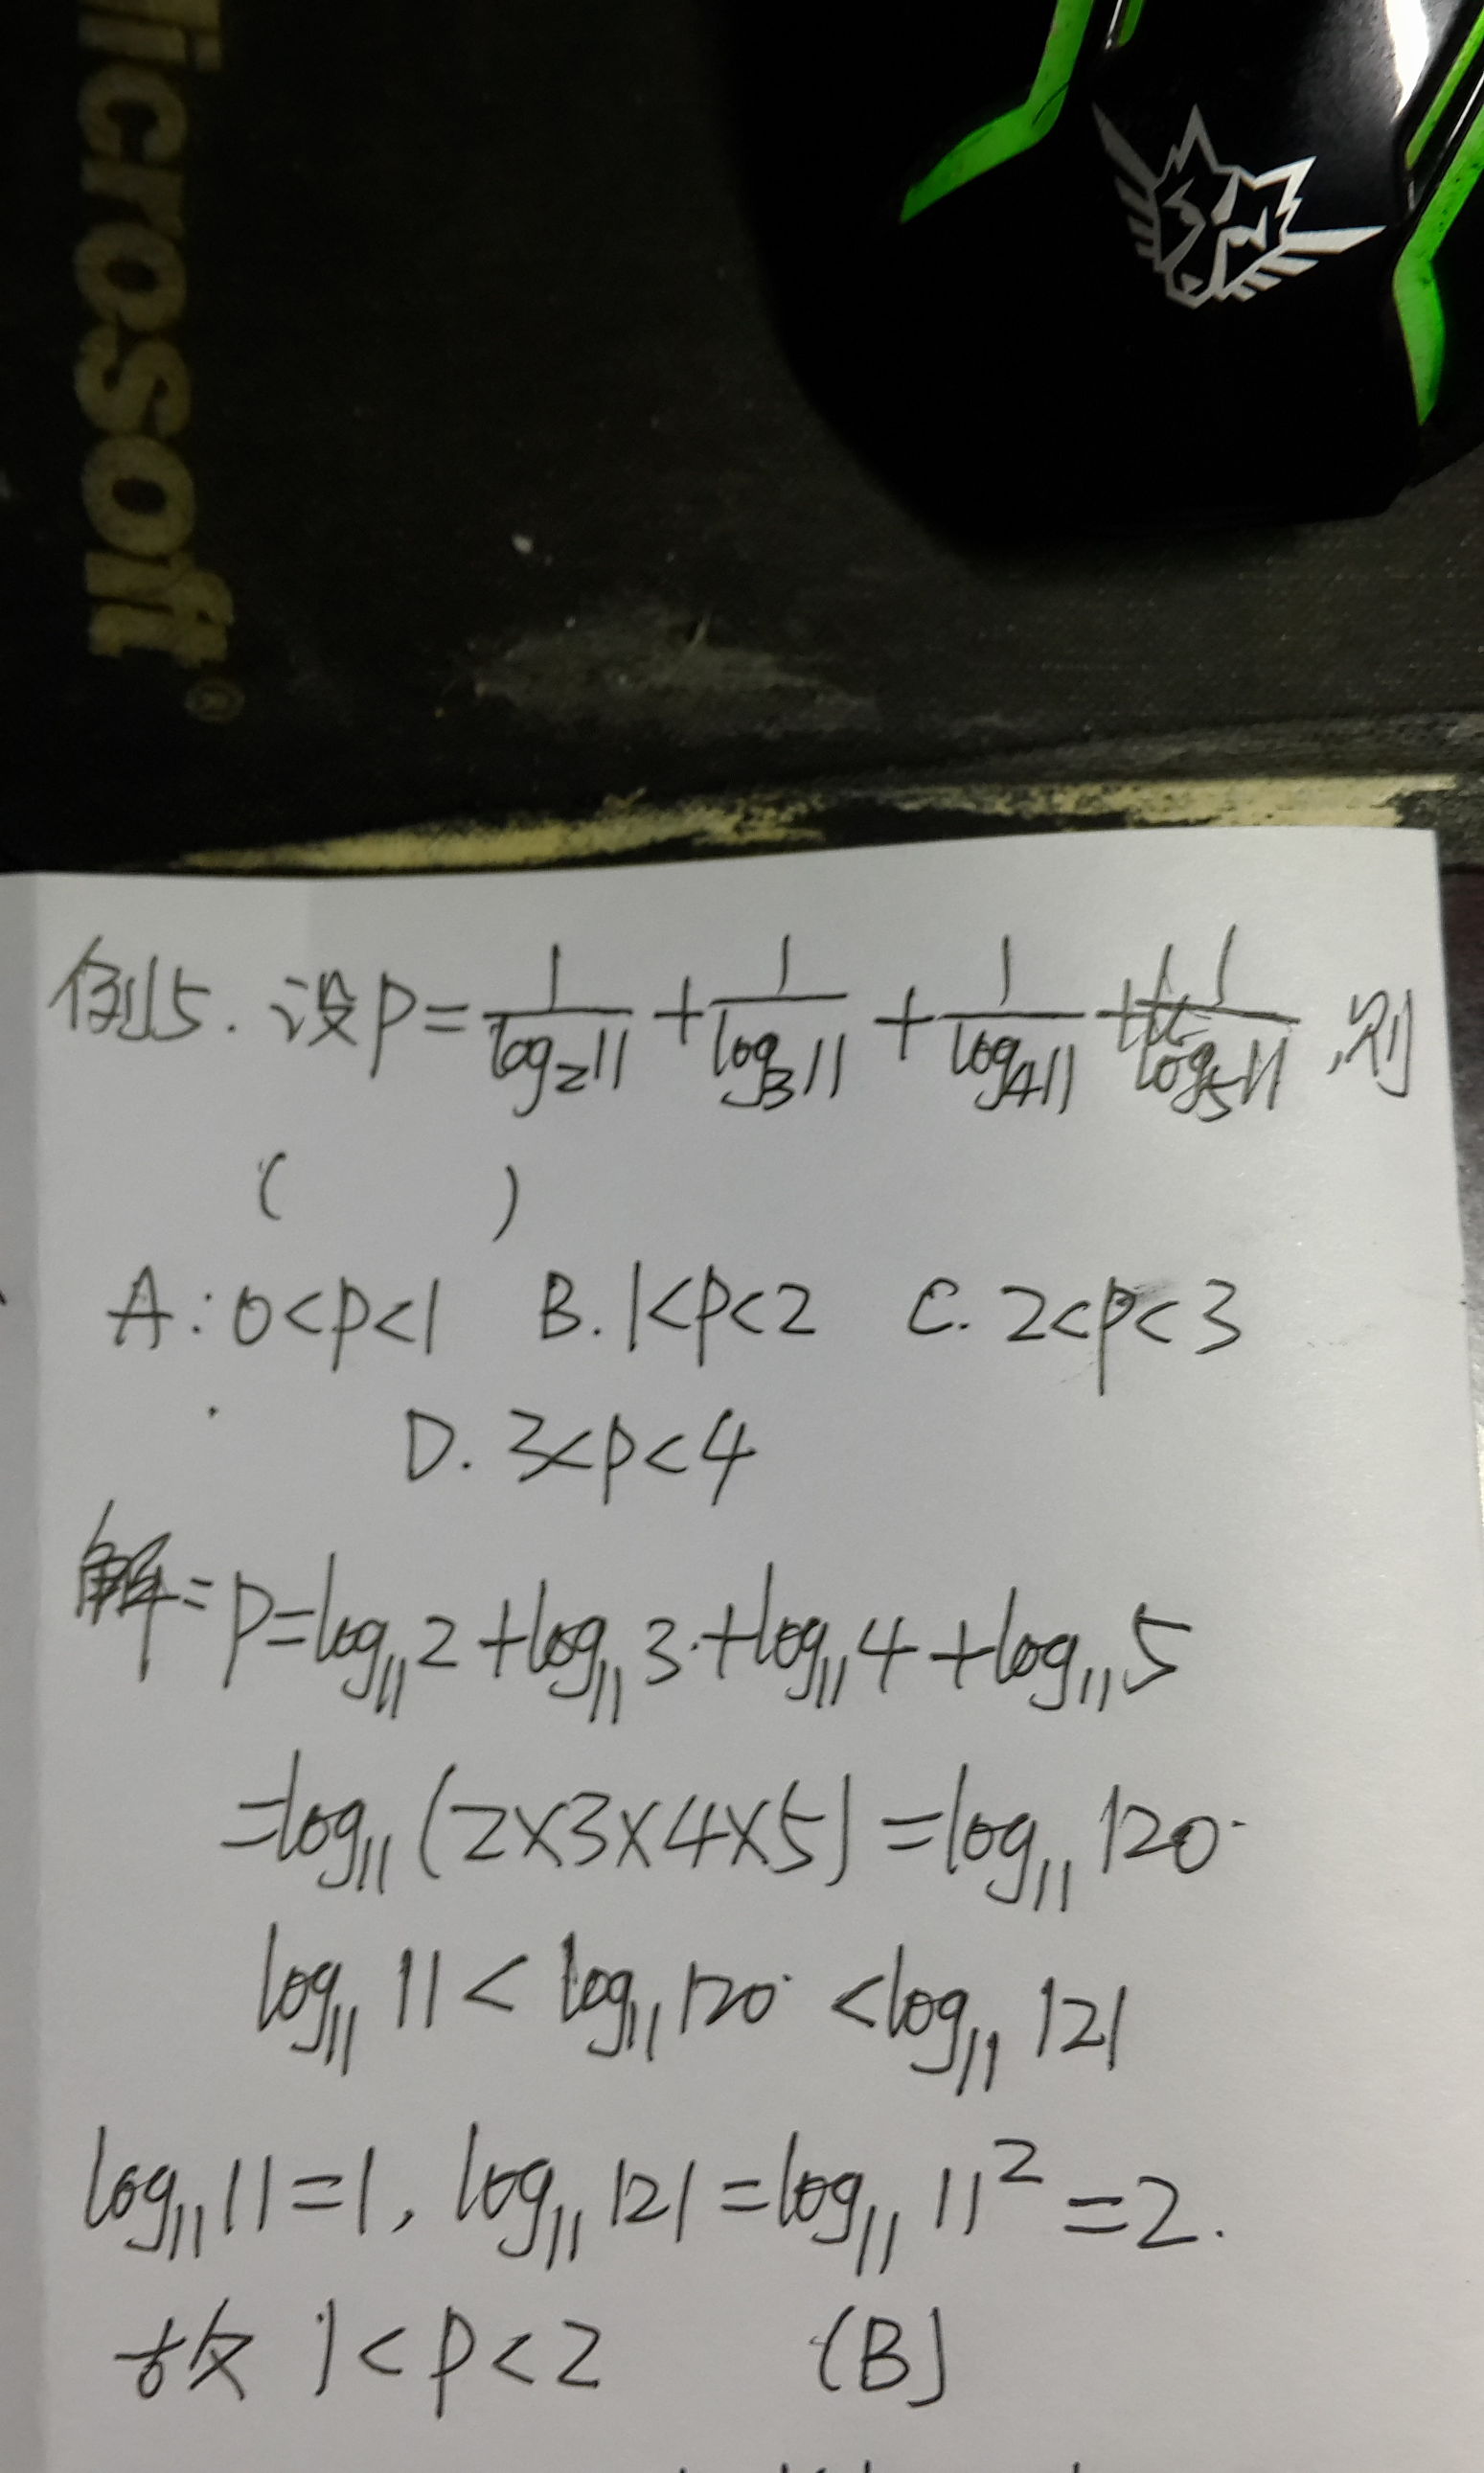 Microsoft®
例5. 设P=1/log₂11+1/log₃11+1/log₄11+1/log₅11,则
( )
A:0<P<1 B.1<P<2 C.2<P<3
D.3<P<4
解:P=log₁₁2+log₁₁3+log₁₁4+log₁₁5
=log₁₁(2×3×4×5)=log₁₁120
log₁₁11<log₁₁120<log₁₁121
log₁₁11=1,log₁₁121=log₁₁11²=2.
故1<P<2 (B)